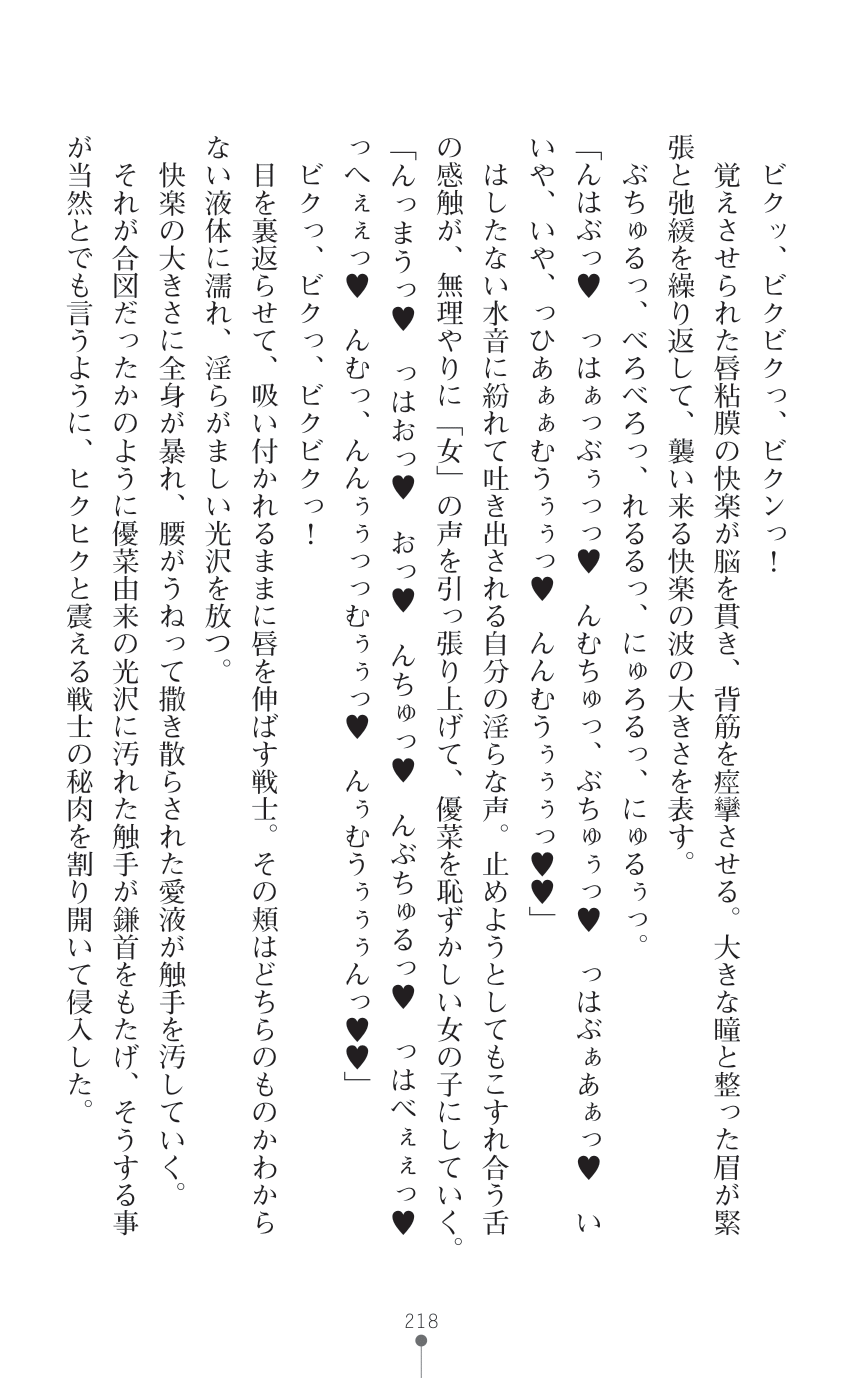 ビクッ、ビクビクっ、ビクンっ！
覚えさせられた唇粘膜の快楽が脳を貫き、背筋を痙攣させる。大きな瞳と整った眉が緊
張と弛緩を繰り返して、襲い来る快楽の波の大きさを表す。
ぶちゅるっ、べろべろっ、れるるっ、にゅろるっ、にゅるぅっ。
「んはぶっ♥　っはぁっぶぅっっ♥　んむちゅっ、ぶちゅぅっ♥　っはぶぁあぁっ♥　い
いや、いや、っひあぁぁむうぅぅっ♥　んんむうぅぅぅっ♥♥」
はしたない水音に紛れて吐き出される自分の淫らな声。止めようとしてもこすれ合う舌
の感触が、無理やりに「女」の声を引っ張り上げて、優菜を恥ずかしい女の子にしていく。
「んっまうっ♥　っはおっ♥　おっ♥　んちゅっ♥　んぶちゅるっ♥　っはべぇぇっ♥
っへぇぇっ♥　んむっ、んんぅぅっっむぅぅっ♥　んぅむうぅぅぅんっ♥♥」
ビクっ、ビクっ、ビクビクっ！
目を裏返らせて、吸い付かれるままに唇を伸ばす戦士。その頬はどちらのものかわから
ない液体に濡れ、淫らがましい光沢を放つ。
快楽の大きさに全身が暴れ、腰がうねって撒き散らされた愛液が触手を汚していく。
それが合図だったかのように優菜由来の光沢に汚れた触手が鎌首をもたげ、そうする事
が当然とでも言うように、ヒクヒクと震える戦士の秘肉を割り開いて侵入した。
218